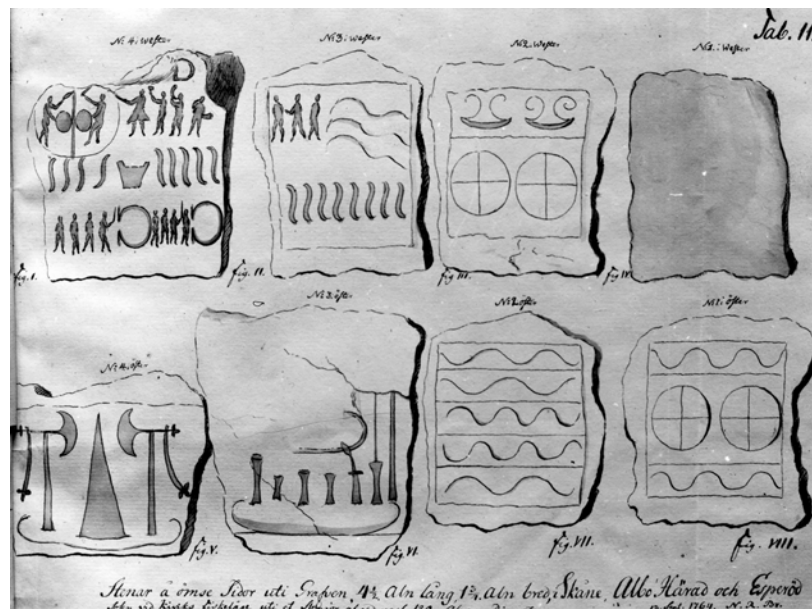 Tab. II
N: 4: wester
N: 3: wester
N: 2. wester
N: 1. : wester
fig. I.
fig. II.
fig III.
fig. IV.
N: 4. öster
N: 3. öster
N: 2 öster
N: 1: öster
fig. V.
fig. VI.
fig. VII.
fig. VIII.
Stenar å ömse Sidor uti Grafven, 4½ Aln lång, 1¾ Aln bred, i Skåne, Albo Härad och Esperöd
1764